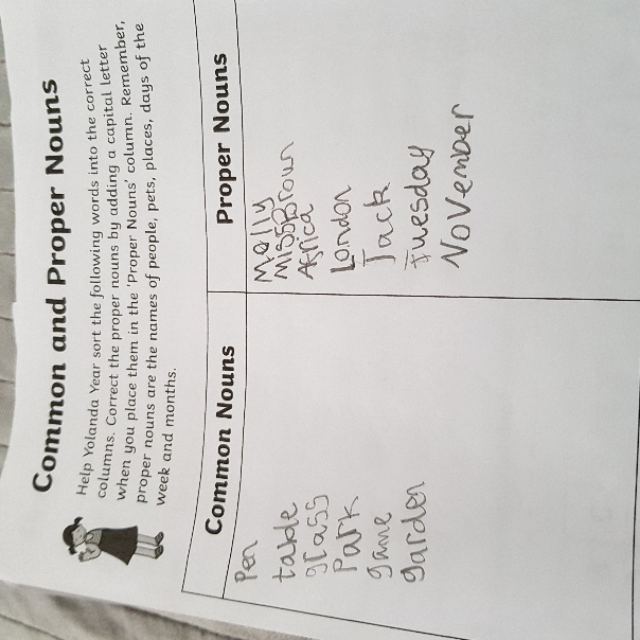 Common and Proper Nouns
Help Yolanda Year sort the following words into the correct
columns. Correct the proper nouns by adding a capital letter
when you place them in the 'Proper Nouns' column. Remember,
proper nouns are the names of people, pets, places, days of the
week and months.
Common Nouns
Pen
table
grass
Park
game
garden
Proper Nouns
Molly
Miss Brown
Africa
London
Jack
Tuesday
November